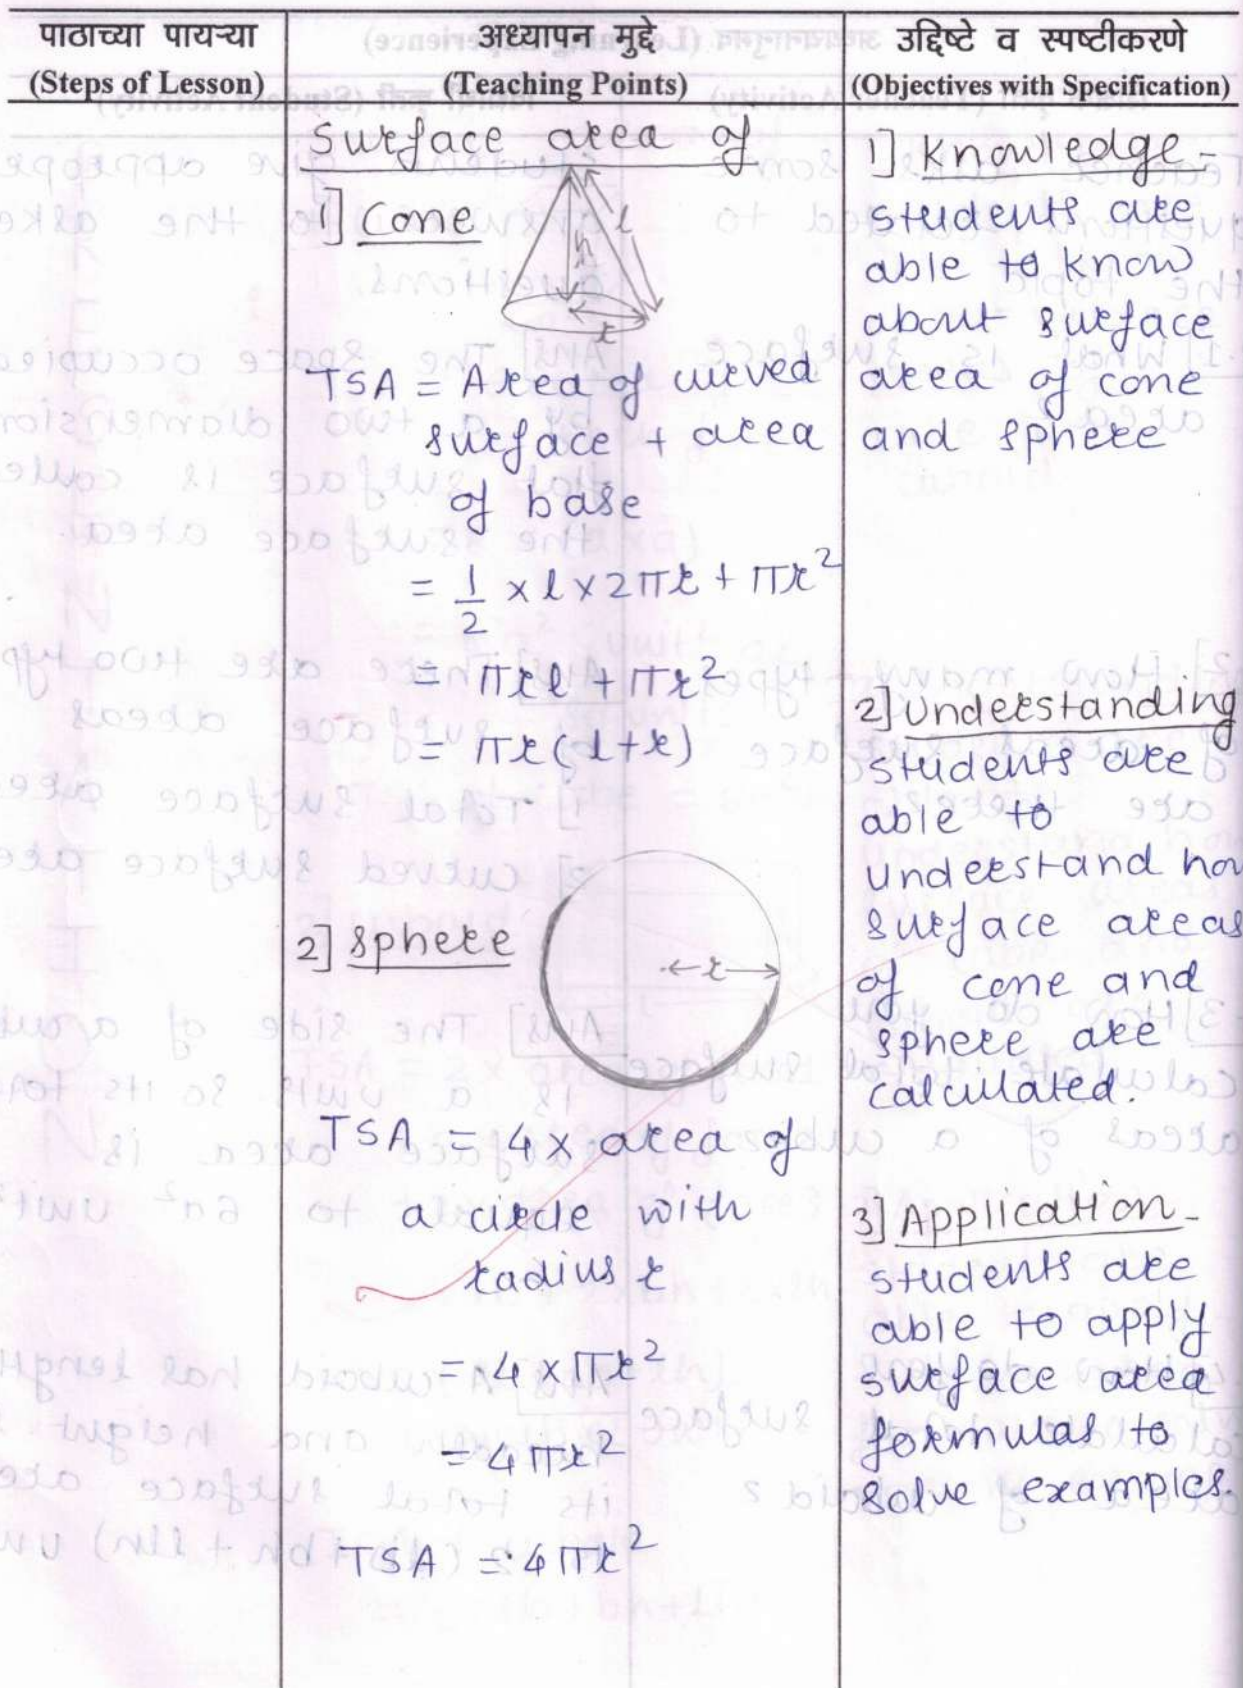 पाठाच्या पायऱ्या
(Steps of Lesson)
अध्यापन मुद्दे
(Teaching Points)
उद्दिष्टे व स्पष्टीकरणे
(Objectives with Specification)
Surface area of
1] Cone
l
h
r
TSA = Area of curved
surface + area
of base
= 1/2 × l × 2πr + πr²
= πrl + πr²
= πr(l+r)
2] Sphere
r
TSA = 4 × area of
a circle with
radius r
= 4 × πr²
= 4πr²
TSA = 4πr²
1] Knowledge -
students are
able to know
about surface
area of cone
and sphere
2] Understanding
students are
able to
understand how
surface areas
of cone and
sphere are
calculated.
3] Application -
students are
able to apply
surface area
formulas to
solve examples.